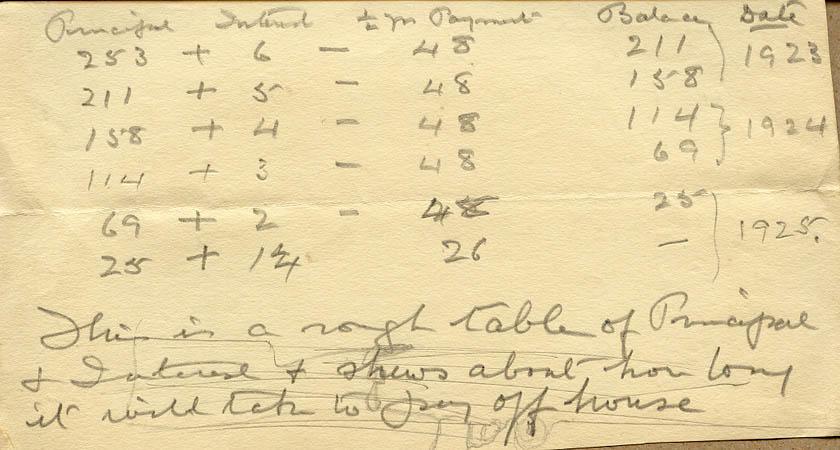 Principal Interest ½ yr Payment Balance Date
253 + 6 - 48 211
1923
211 + 5 - 48 158
158 + 4 - 48 114
1924
114 + 3 - 48 69
69 + 2 - 48 25
1925.
25 + 1¼ 26 —
This is a rough table of Principal
& Interest & shews about how long
it will take to pay off house